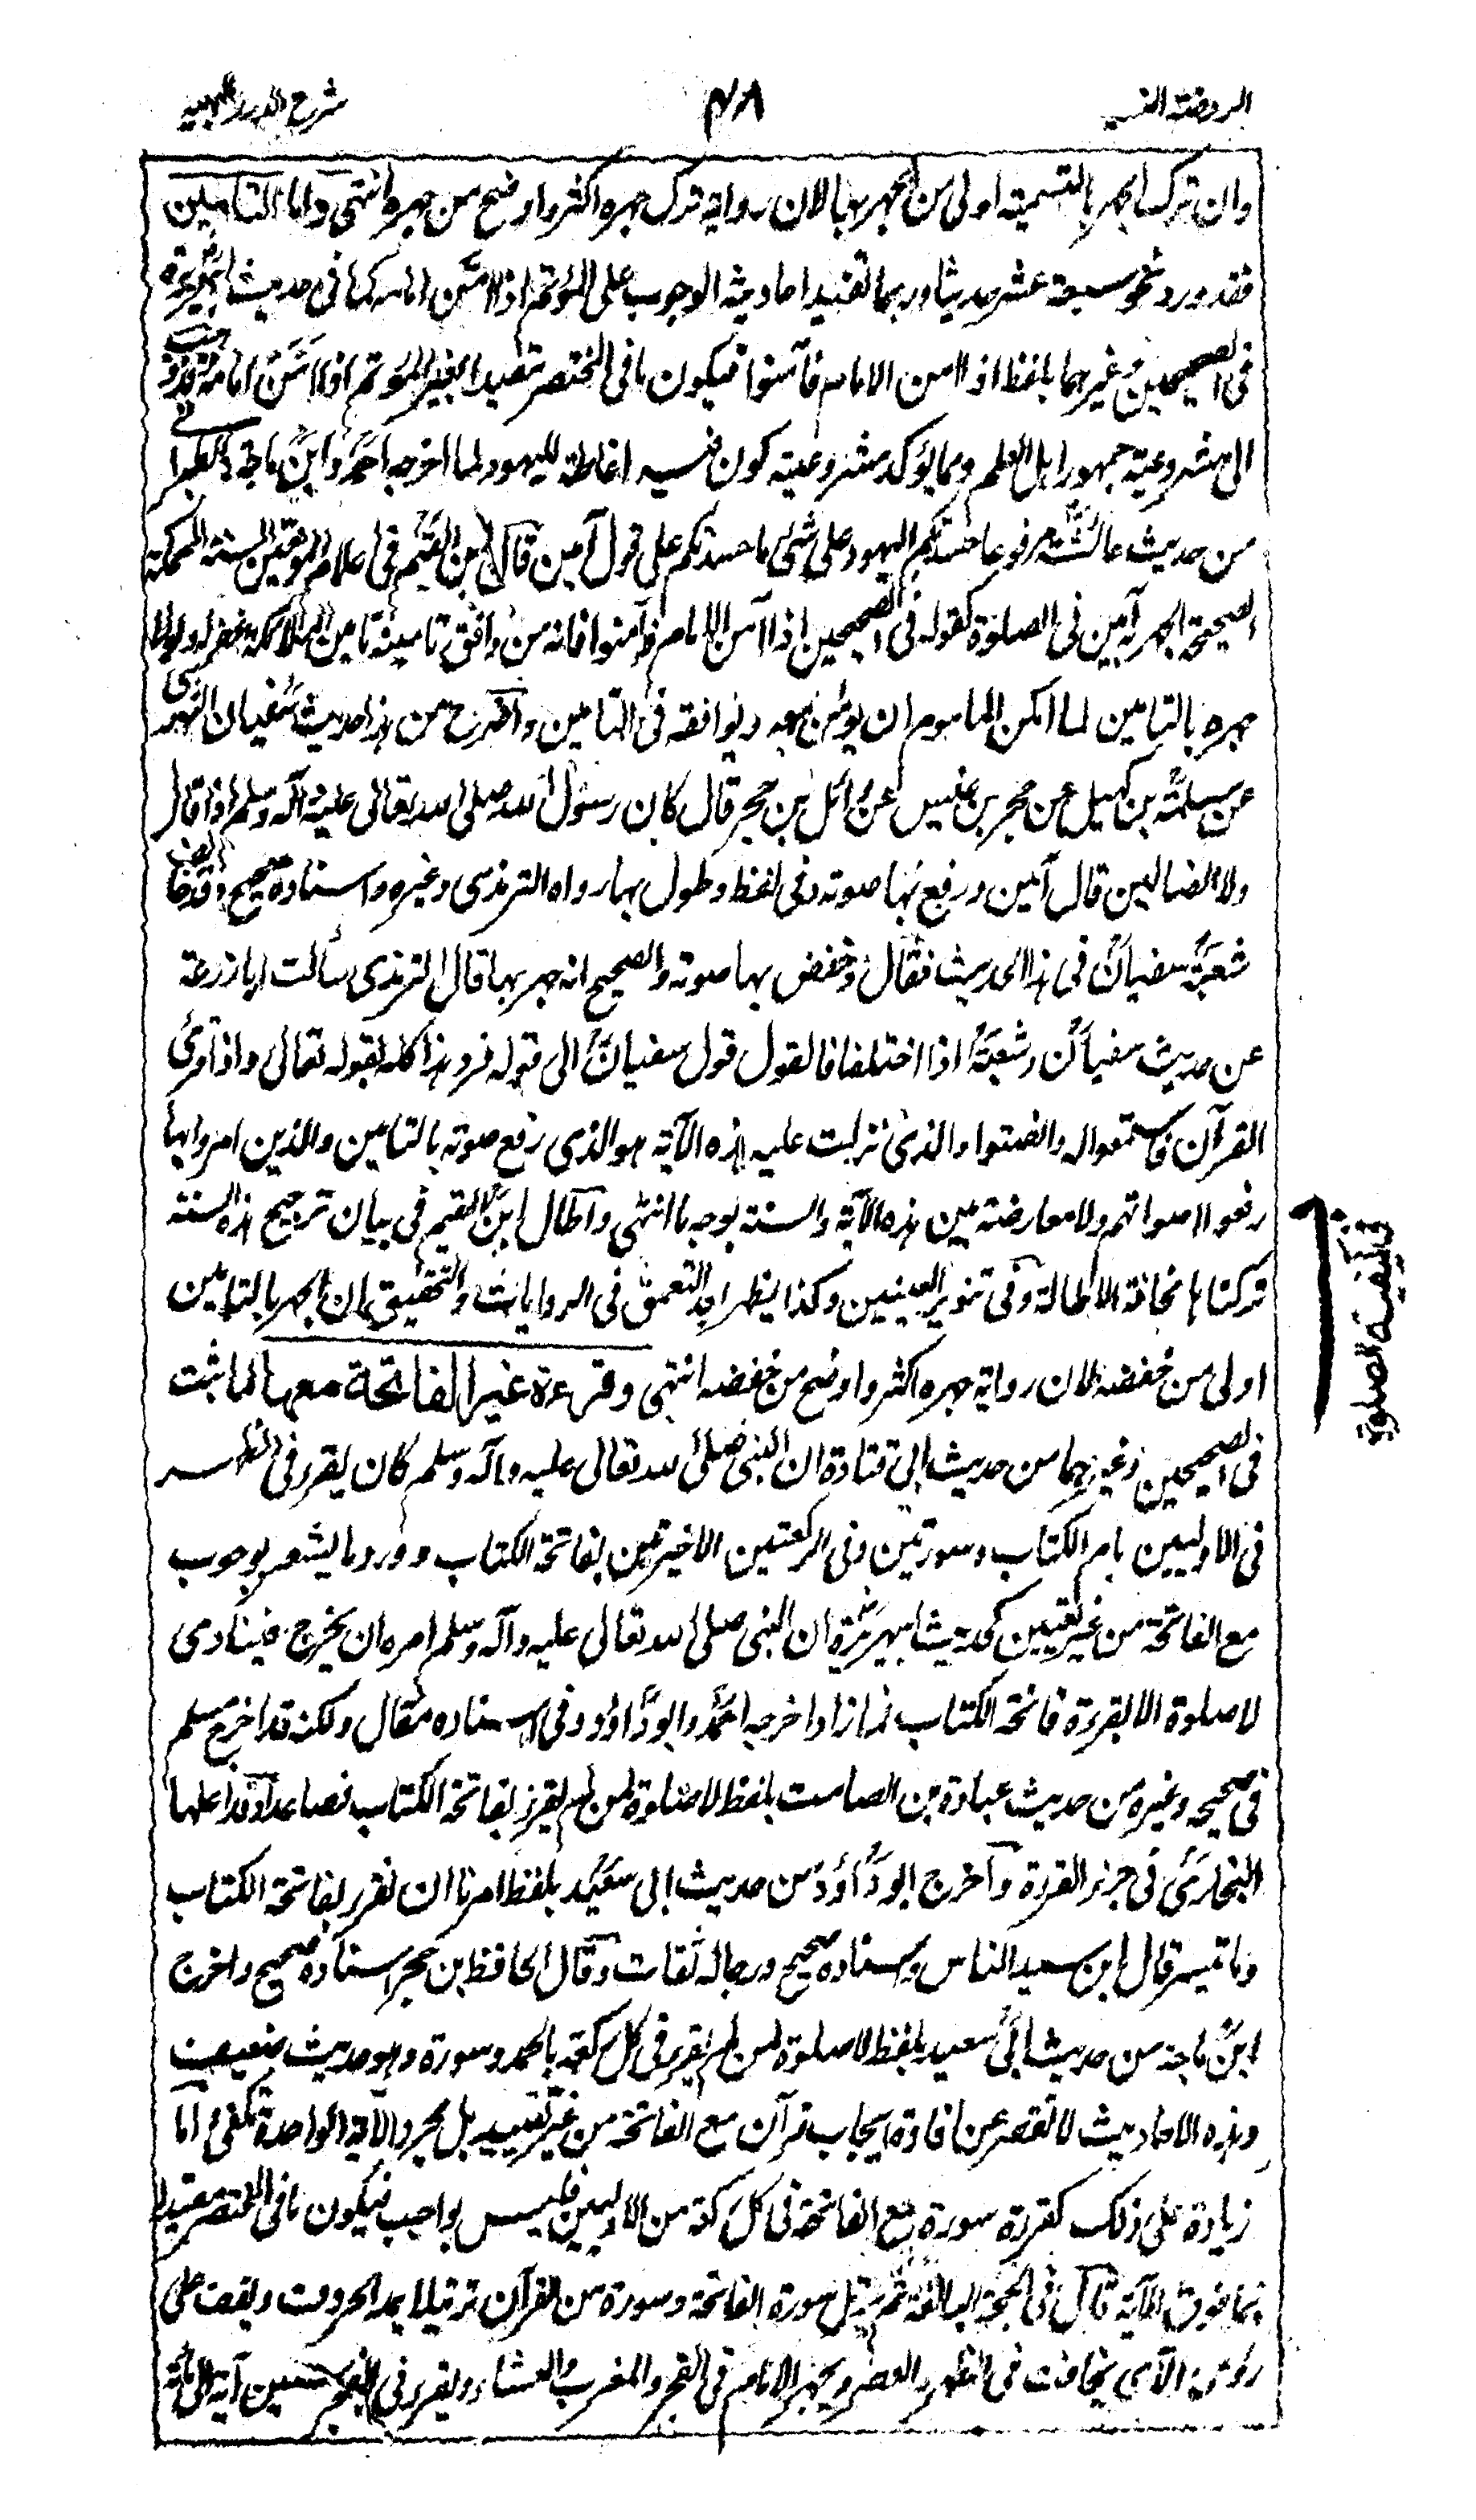 الروضة الندية
٤٨
شرح الدرر البهية
وان ترك الجهر بالتسمية اولى من الجهر بها لان رواية ترك جهره اكثر واوضح من جهره انتهى واما التامين
فقد ورد نحو سبعة عشر حديثا وربما تفيد احاديثه الوجوب على المؤتم اذا امن امامه كما فى حديث ابى هريرة
فى الصحيحين وغيرهما بلفظ اذا امن الامام فأمنوا فيكون ما فى المختصر مقيدا بغير المؤتم اذا امن امامه وقد ذهب
الى مشروعيته جمهور اهل العلم ومما يؤكد مشروعيته كون فيه اغاظة لليهود لما اخرجه احمد وابن ماجة والطبرانى
من حديث عائشة مرفوعا ما حسدتكم اليهود على شئ ما حسدتكم على قول آمين قال ابن القيم فى اعلام الموقعين السنة المحكمة
الصحيحة الجهر بآمين فى الصلوة كقوله فى الصحيحين اذا امن الامام فأمنوا فانه من وافق تامينه تامين الملائكة غفر له ولولا
جهره بالتامين لما امكن الماموم ان يؤمن معه ويوافقه فى التامين واصرح من هذا حديث سفيان الثورى
عن سلمة بن كهيل عن حجر بن عنبس عن وائل بن حجر قال كان رسول الله صلى الله تعالى عليه وآله وسلم اذا قال
ولا الضالين قال آمين ورفع بها صوته وفى لفظ وطول بها رواه الترمذى وغيره واسناده صحيح وقد خالف
شعبة سفيان فى هذا الحديث فقال وخفض بها صوته والصحيح انه جهر بها قال الترمذى سألت ابا زرعة
عن حديث سفيان وشعبة اذا اختلفا فالقول قول سفيان الى قوله فرد هذا كله بقوله تعالى واذا قرئ
القرآن فاستمعوا له وانصتوا والذى نزلت عليه هذه الآية هو الذى رفع صوته بالتامين والذين امروا بها
رفعوا اصواتهم ولا معارضة بين هذه الآية والسنة بوجه ما انتهى واطال ابن القيم فى بيان ترجيح هذه السنة
تركناها مخافة الاطالة وفى تنوير العينين وكذا يظهر بعد التعمق فى الروايات والتحقيق ان الجهر بالتامين
اولى من خفضه لان رواية جهره اكثر واوضح من خفضه انتهى وقرءة غير الفاتحة معها لما ثبت
فى الصحيحين وغيرهما من حديث ابى قتادة ان النبى صلى الله تعالى عليه وآله وسلم كان يقرء فى الظهر
فى الاوليين بام الكتاب وسورتين وفى الركعتين الاخيرتين بفاتحة الكتاب وورد ما يشعر بوجوب
مع الفاتحة من غير تعيين كحديث ابى هريرة ان النبى صلى الله تعالى عليه وآله وسلم امره ان يخرج فينادى
لا صلوة الا بقرءة فاتحة الكتاب فما زاد اخرجه احمد وابو داؤد وفى اسناده مقال ولكنه قد اخرج مسلم
فى صحيحه وغيره من حديث عبادة بن الصامت بلفظ لا صلوة لمن لم يقرء بفاتحة الكتاب فصاعدا وقد اعلها
البخارى فى جزء القرءة واخرج ابو داؤد من حديث ابى سعيد بلفظ امرنا ان نقرء بفاتحة الكتاب
وما تيسر قال ابن سيد الناس واسناده صحيح ورجاله ثقات وقال الحافظ بن حجر اسناده صحيح واخرج
ابن ماجة من حديث ابى سعيد بلفظ لا صلوة لمن لم يقرء فى كل ركعة بالحمد وسورة وهو حديث ضعيف
وهذه الاحاديث لا تقصر عن افادة ايجاب قرآن مع الفاتحة من غير تقييد بل مجرد الآية الواحدة تكفى اما
زيادة على ذلك كقرءة سورة مع الفاتحة فى كل ركعة من الاوليين فليس بواجب فيكون ما فى المختصر مقيدا
بما فوق الآية قال فى الحجة البالغة ثم يرتل سورة الفاتحة وسورة من القرآن ترتيلا يمد الحروف ويقف على
رؤس الآى يخافت فى الظهر والعصر ويجهر الامام فى الفجر والمغرب والعشاء ويقرء فى الفجر ستين آية الى مائة
الصلوة